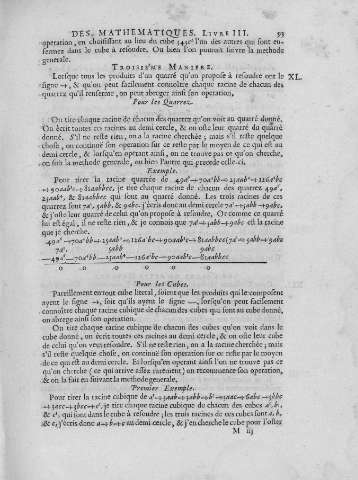 DES MATHEMATIQUES. LIVRE III. 93
operation, en choisissant au lieu du cube l'un des autres qui sont en-
fermez dans le cube à resoudre. Ou bien l'on pourra suivre la methode
generale.
TROISIE'ME MANIERE.
Lorsque tous les produits d'un quarré qu'on propose à resoudre ont le XL.
signe +, & qu'on peut facilement connoître chaque racine de chacun des
quarrez qu'il renferme, on peut abreger ainsi son operation,
Pour les Quarrez.
On tire chaque racine de chacun des quarrez qu'on voit au quarré donné.
On écrit toutes ces racines au demi cercle, & on oste leur quarré du quarré
donné. S'il ne reste rien, on a la racine cherchée; mais s'il reste quelque
chose, on continuë son operation sur ce reste par le moyen de ce qui est au
demi cercle, & lorsqu'en operant ainsi, on ne trouve pas ce qu'on cherche,
on suit la methode generale, ou bien l'autre qui precede celle-cy.
Exemple.
Pour tirer la racine quarrée de
je tire chaque racine de chacun des quarrez
qui sont au quarré donné. Les trois racines de ces
quarrez sont j'écris donc au demi cercle
& j'oste leur quarré de celui qu'on propose à resoudre. Or comme ce quarré
lui est égal, il ne reste rien, & je connois que est la racine
que je cherche.
0 0 0 0
Pour les Cubes.
Pareillement en tout cube litteral, soit que les produits qui le composent
ayent le signe +, soit qu'ils ayent le signe —, lorsqu'on peut facilement
connoître chaque racine cubique de chacun des cubes qui sont au cube donné,
on abrege ainsi son operation.
On tire chaque racine cubique de chacun des cubes qu'on voit dans le
cube donné, on écrit toutes ces racines au demi cercle, & on oste leur cube
de celui qu'on veut resoudre. S'il ne reste rien, on a la racine cherchée; mais
s'il reste quelque chose, on continuë son operation sur ce reste par le moyen
de ce qui est au demi cercle. Et lorsqu'en operant ainsi l'on ne trouve pas ce
qu'on cherche (ce qui arrive assez rarement) on recommence son operation,
& on la fait en suivant la methode generale.
Premier Exemple.
Pour tirer la racine cubique de
je tire chaque racine cubique de chacun des cubes
& qui sont dans le cube à resoudre; les trois racines de ces cubes sont a, b,
& c, j'écris donc a+b+c au demi cercle, & j'en cherche le cube pour l'oster
M iij